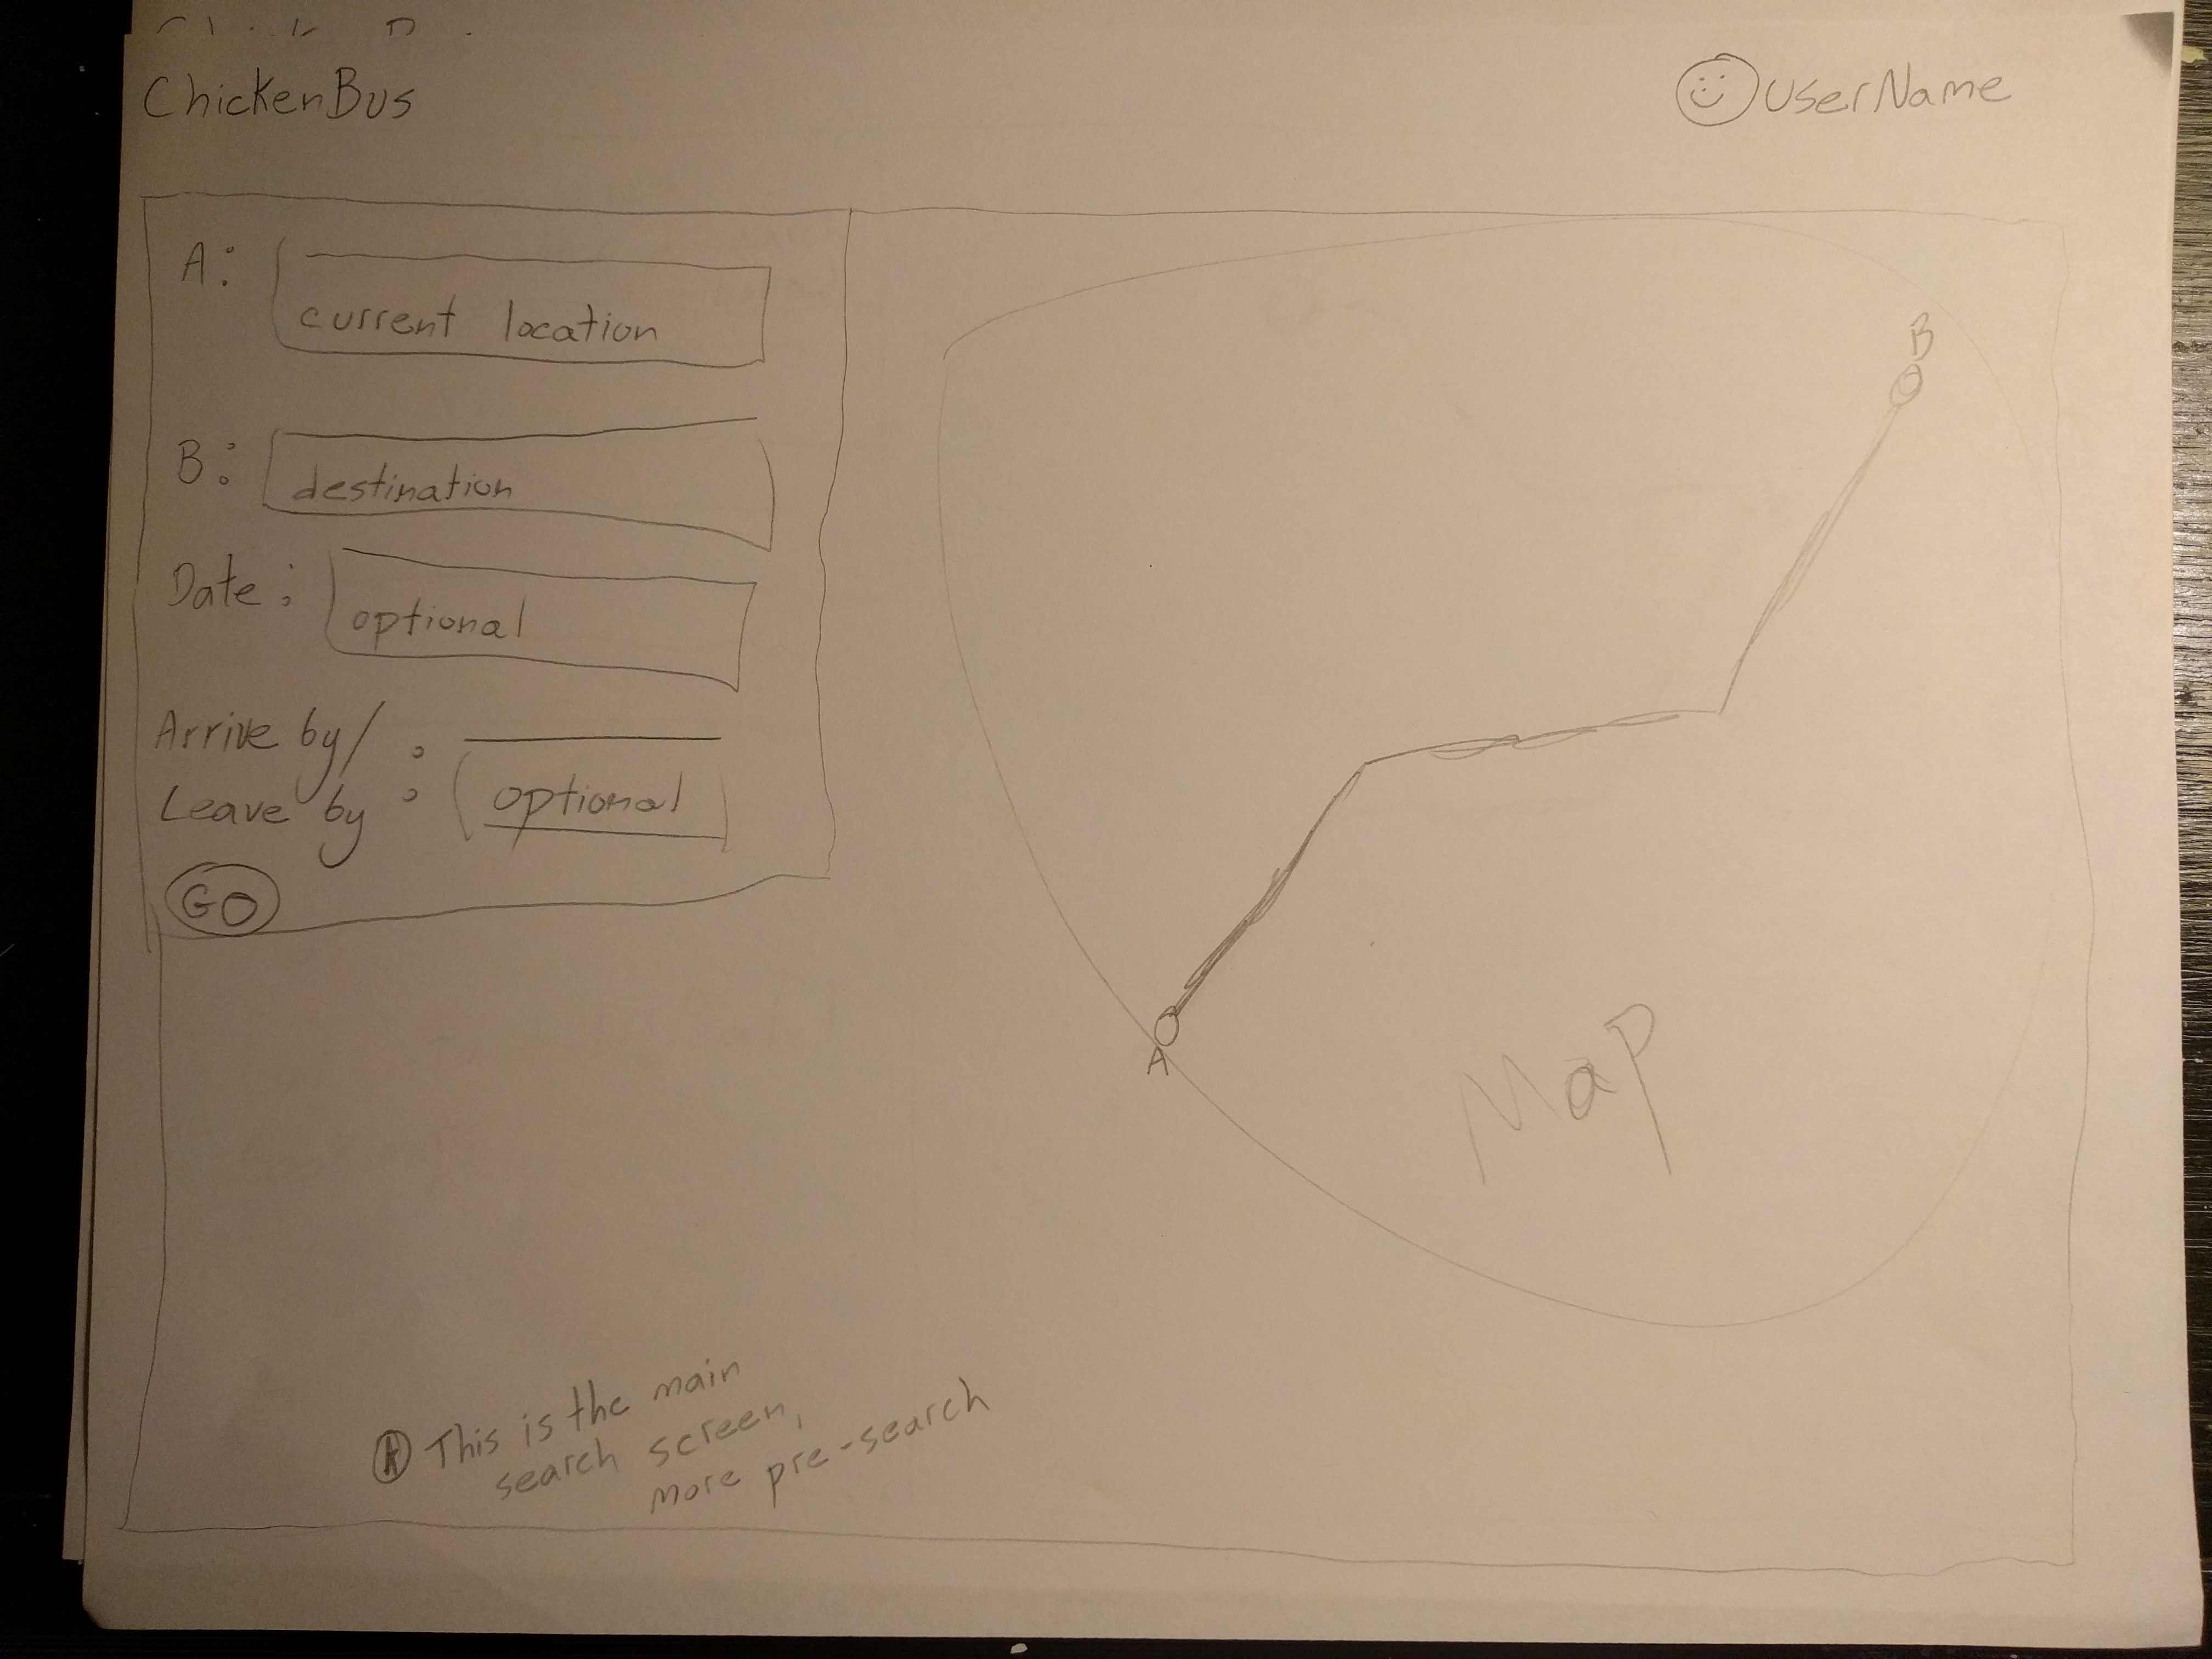 ChickenBus
UserName
A: current location
B: destination
Date: optional
Arrive by/
Leave by : optional
GO
B
A
Map
This is the main
search screen,
more pre-search